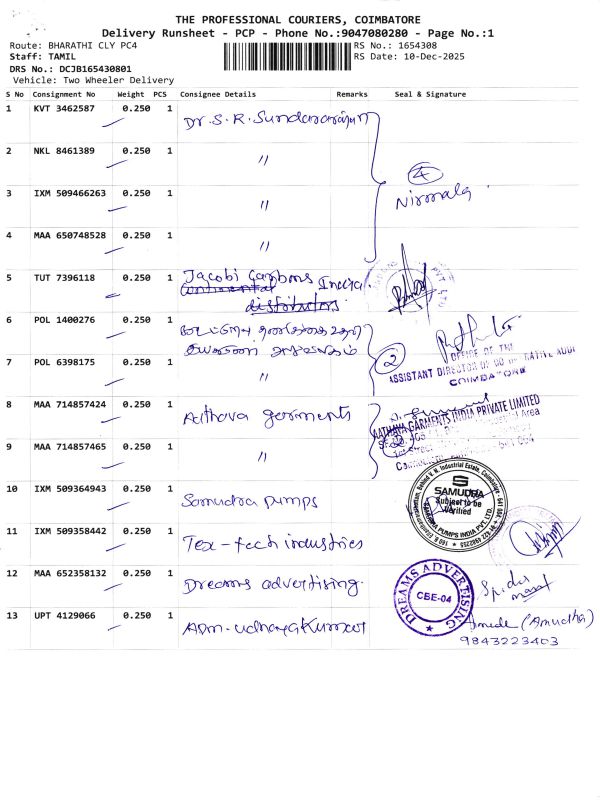 THE PROFESSIONAL COURIERS, COIMBATORE
Delivery Runsheet - PCP - Phone No.:9047080280 - Page No.:1
Route: BHARATHI CLY PC4
RS No.: 1654308
Staff: TAMIL
RS Date: 10-Dec-2025
DRS No.: DCJB165430801
Vehicle: Two Wheeler Delivery
S No Consignment No Weight PCS Consignee Details Remarks Seal & Signature
1 KVT 3462587 0.250 1 Dr. S. R. Sundararajan
2 NKL 8461389 0.250 1 〃
④
3 IXM 509466263 0.250 1 〃 Nirmala
4 MAA 650748528 0.250 1 〃
5 TUT 7396118 0.250 1 Jacobi Carbons India
distributors
6 POL 1400276 0.250 1
②
OFFICE OF THE
7 POL 6398175 0.250 1 〃
ASSISTANT DIRECTOR OF CO OPERATIVE AUDI
COIMBATORE
8 MAA 714857424 0.250 1 Aithava germents
AATHAVA GARMENTS INDIA PRIVATE LIMITED
9 MAA 714857465 0.250 1 〃
10 IXM 509364943 0.250 1 Samudra pumps
SAMUDRA
Subject to be
Verified
SAMUDRA PUMPS INDIA PVT. LTD.
11 IXM 509358442 0.250 1 Tex-tech industries
12 MAA 652358132 0.250 1 Dreams advertising.
DREAMS ADVERTISING
CBE-04
13 UPT 4129066 0.250 1 Adm-udhayakumar
(Anudha)
9843223403